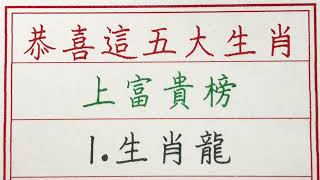 恭喜這五大生肖
上富貴榜
1.生肖龍